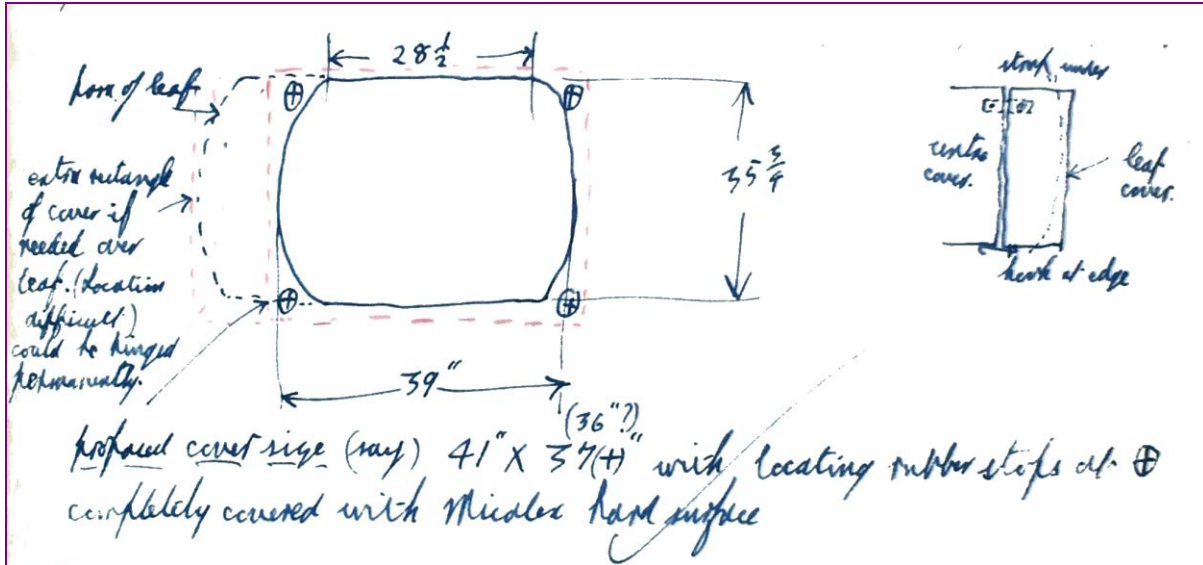 28 ½
form of leaf
extra rectangle
of cover if
needed over
leaf. (Location
difficult)
could be hinged
permanently.
35 ¾
39"
strap under
centre
cover.
leaf
cover.
hook at edge
(36"?)
proposed cover size (say) 41" X 37(+)" with locating rubber stops at ⊕
completely covered with Micalex hard surface